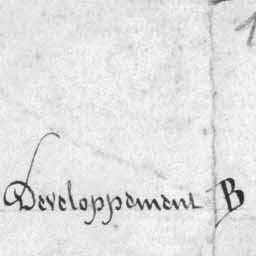 1
Developpement B